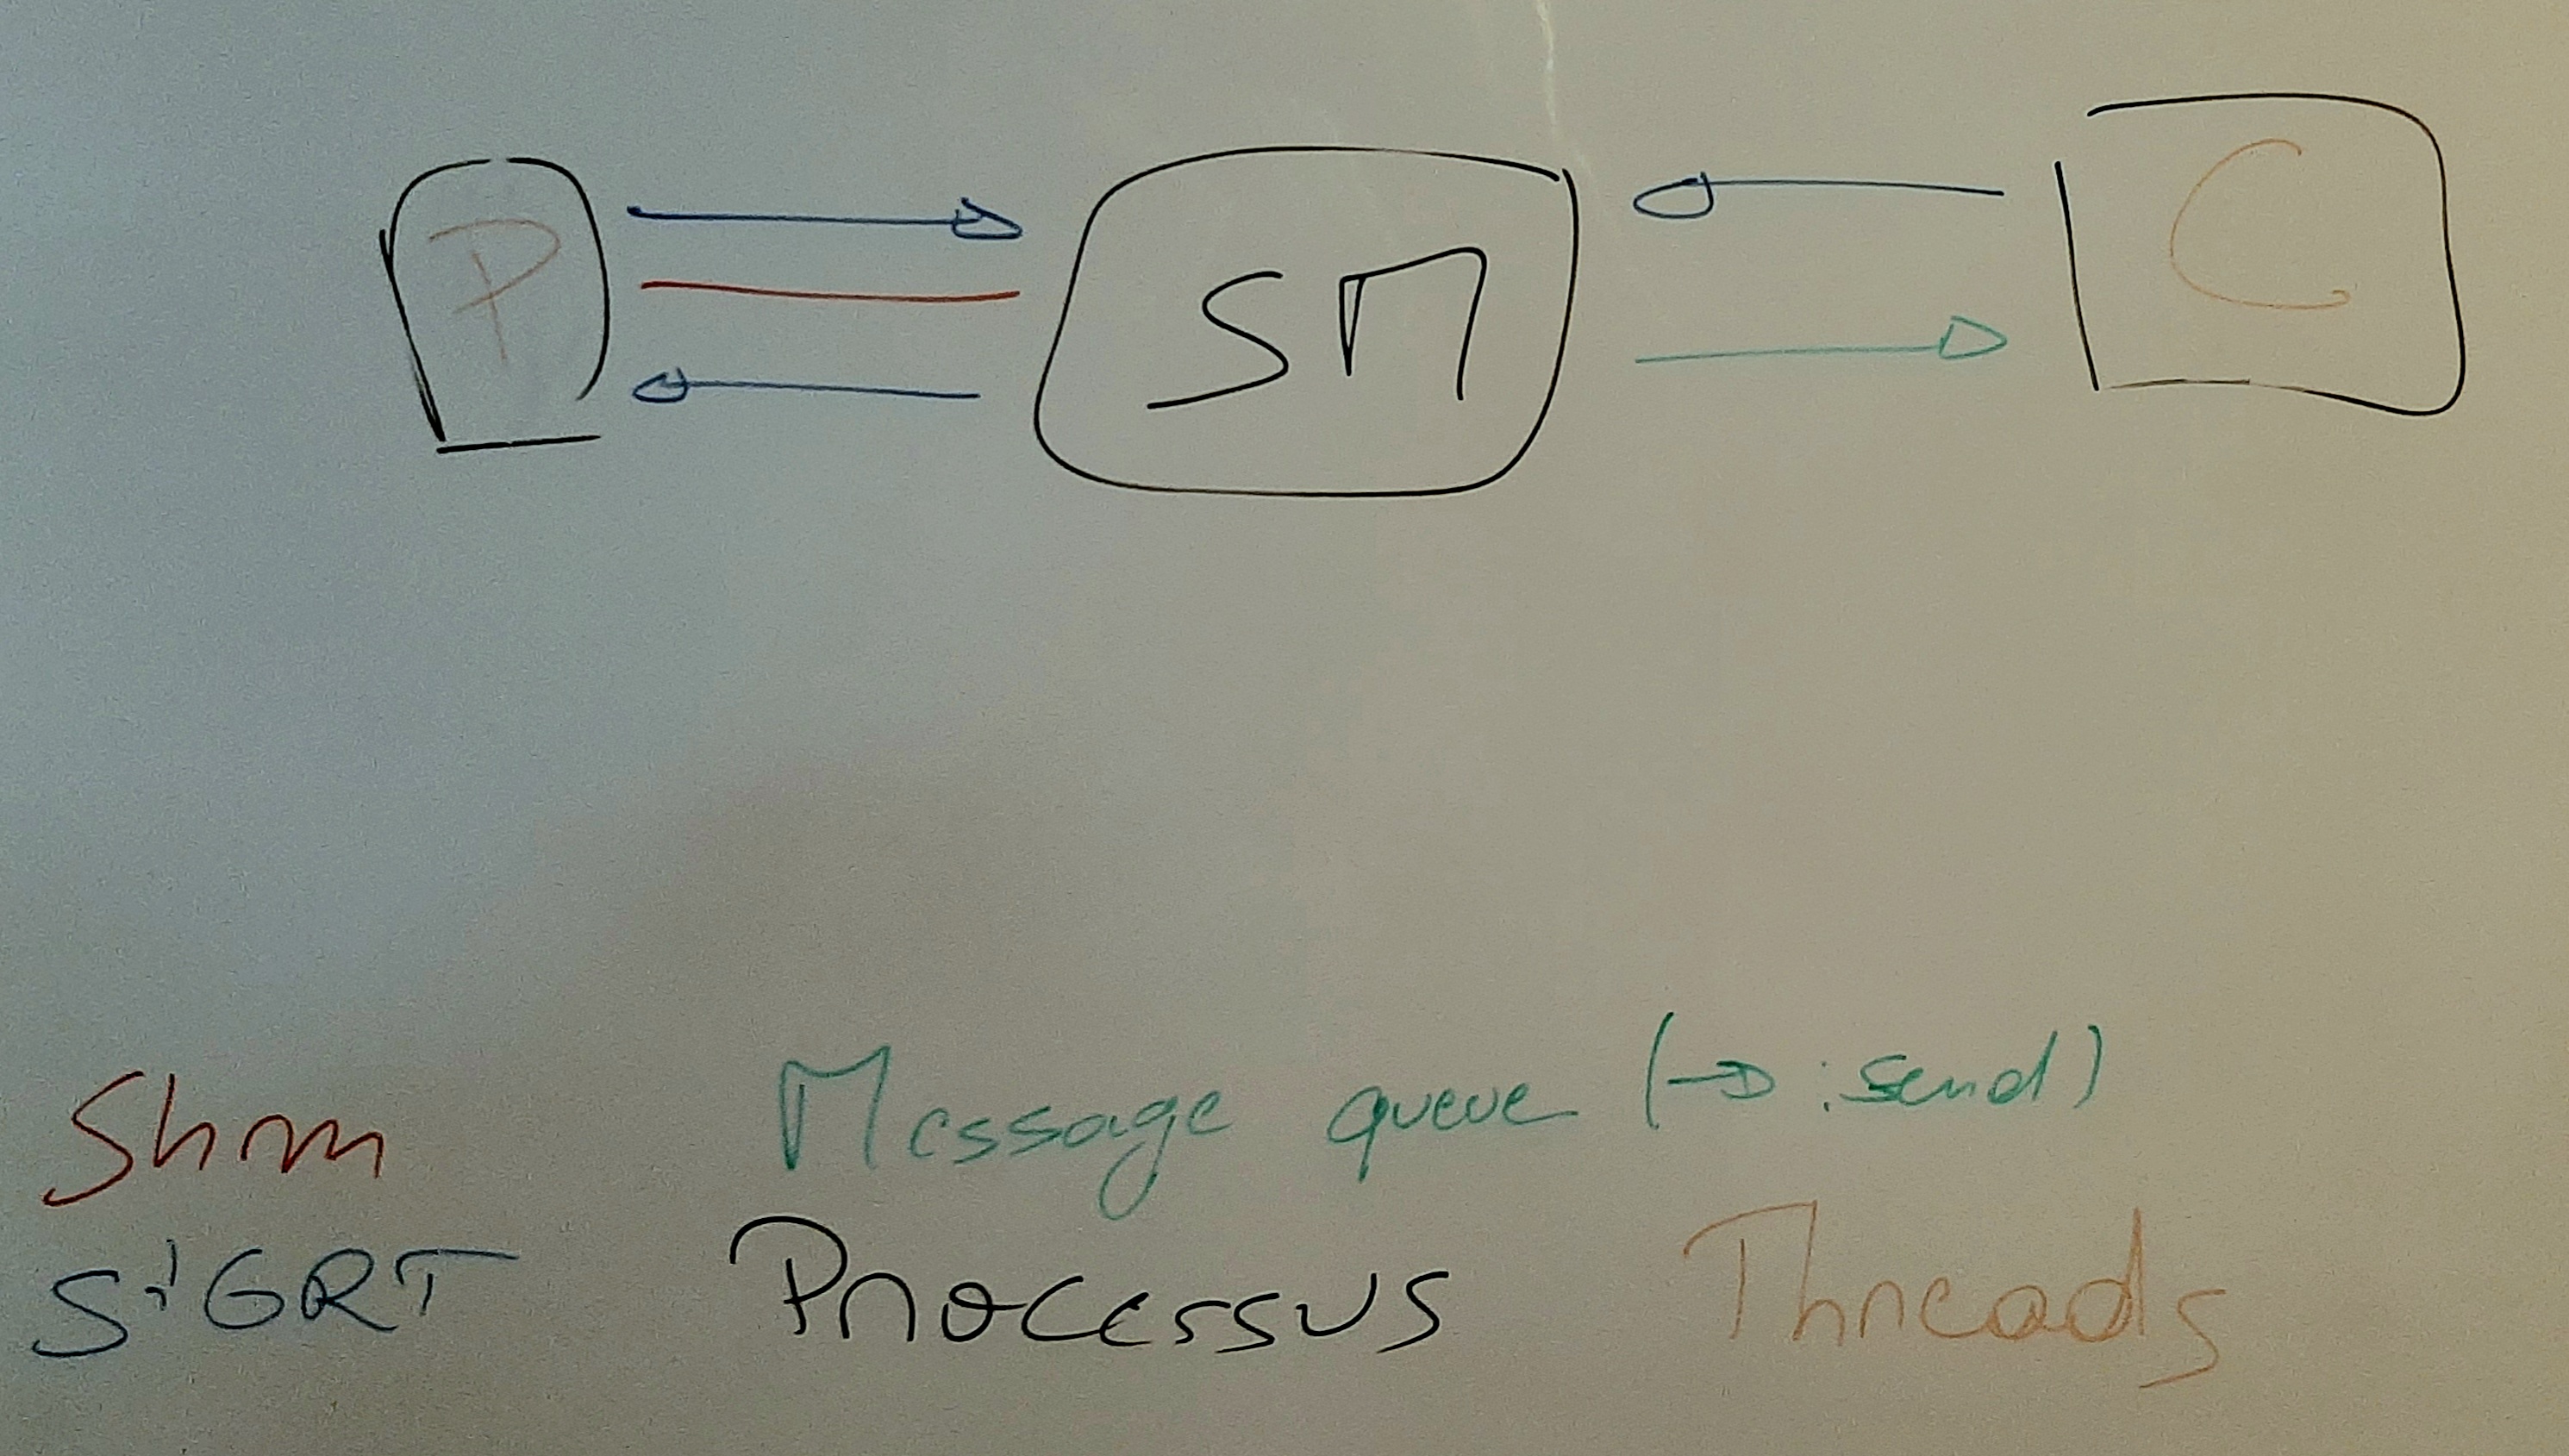 P SM C
Shm Message queue (→ : send)
SIGRT Processus Threads